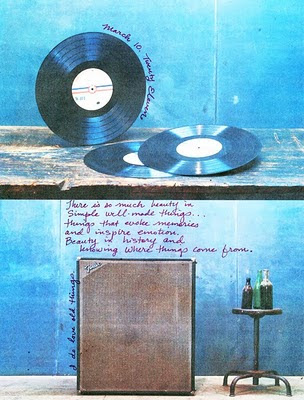 March 10. Twenty Eleven.
There is so much beauty in
Simple well-made things...
things that evoke memories
and inspire emotion.
Beauty in history and
knowing where things come from.
I do love old things.